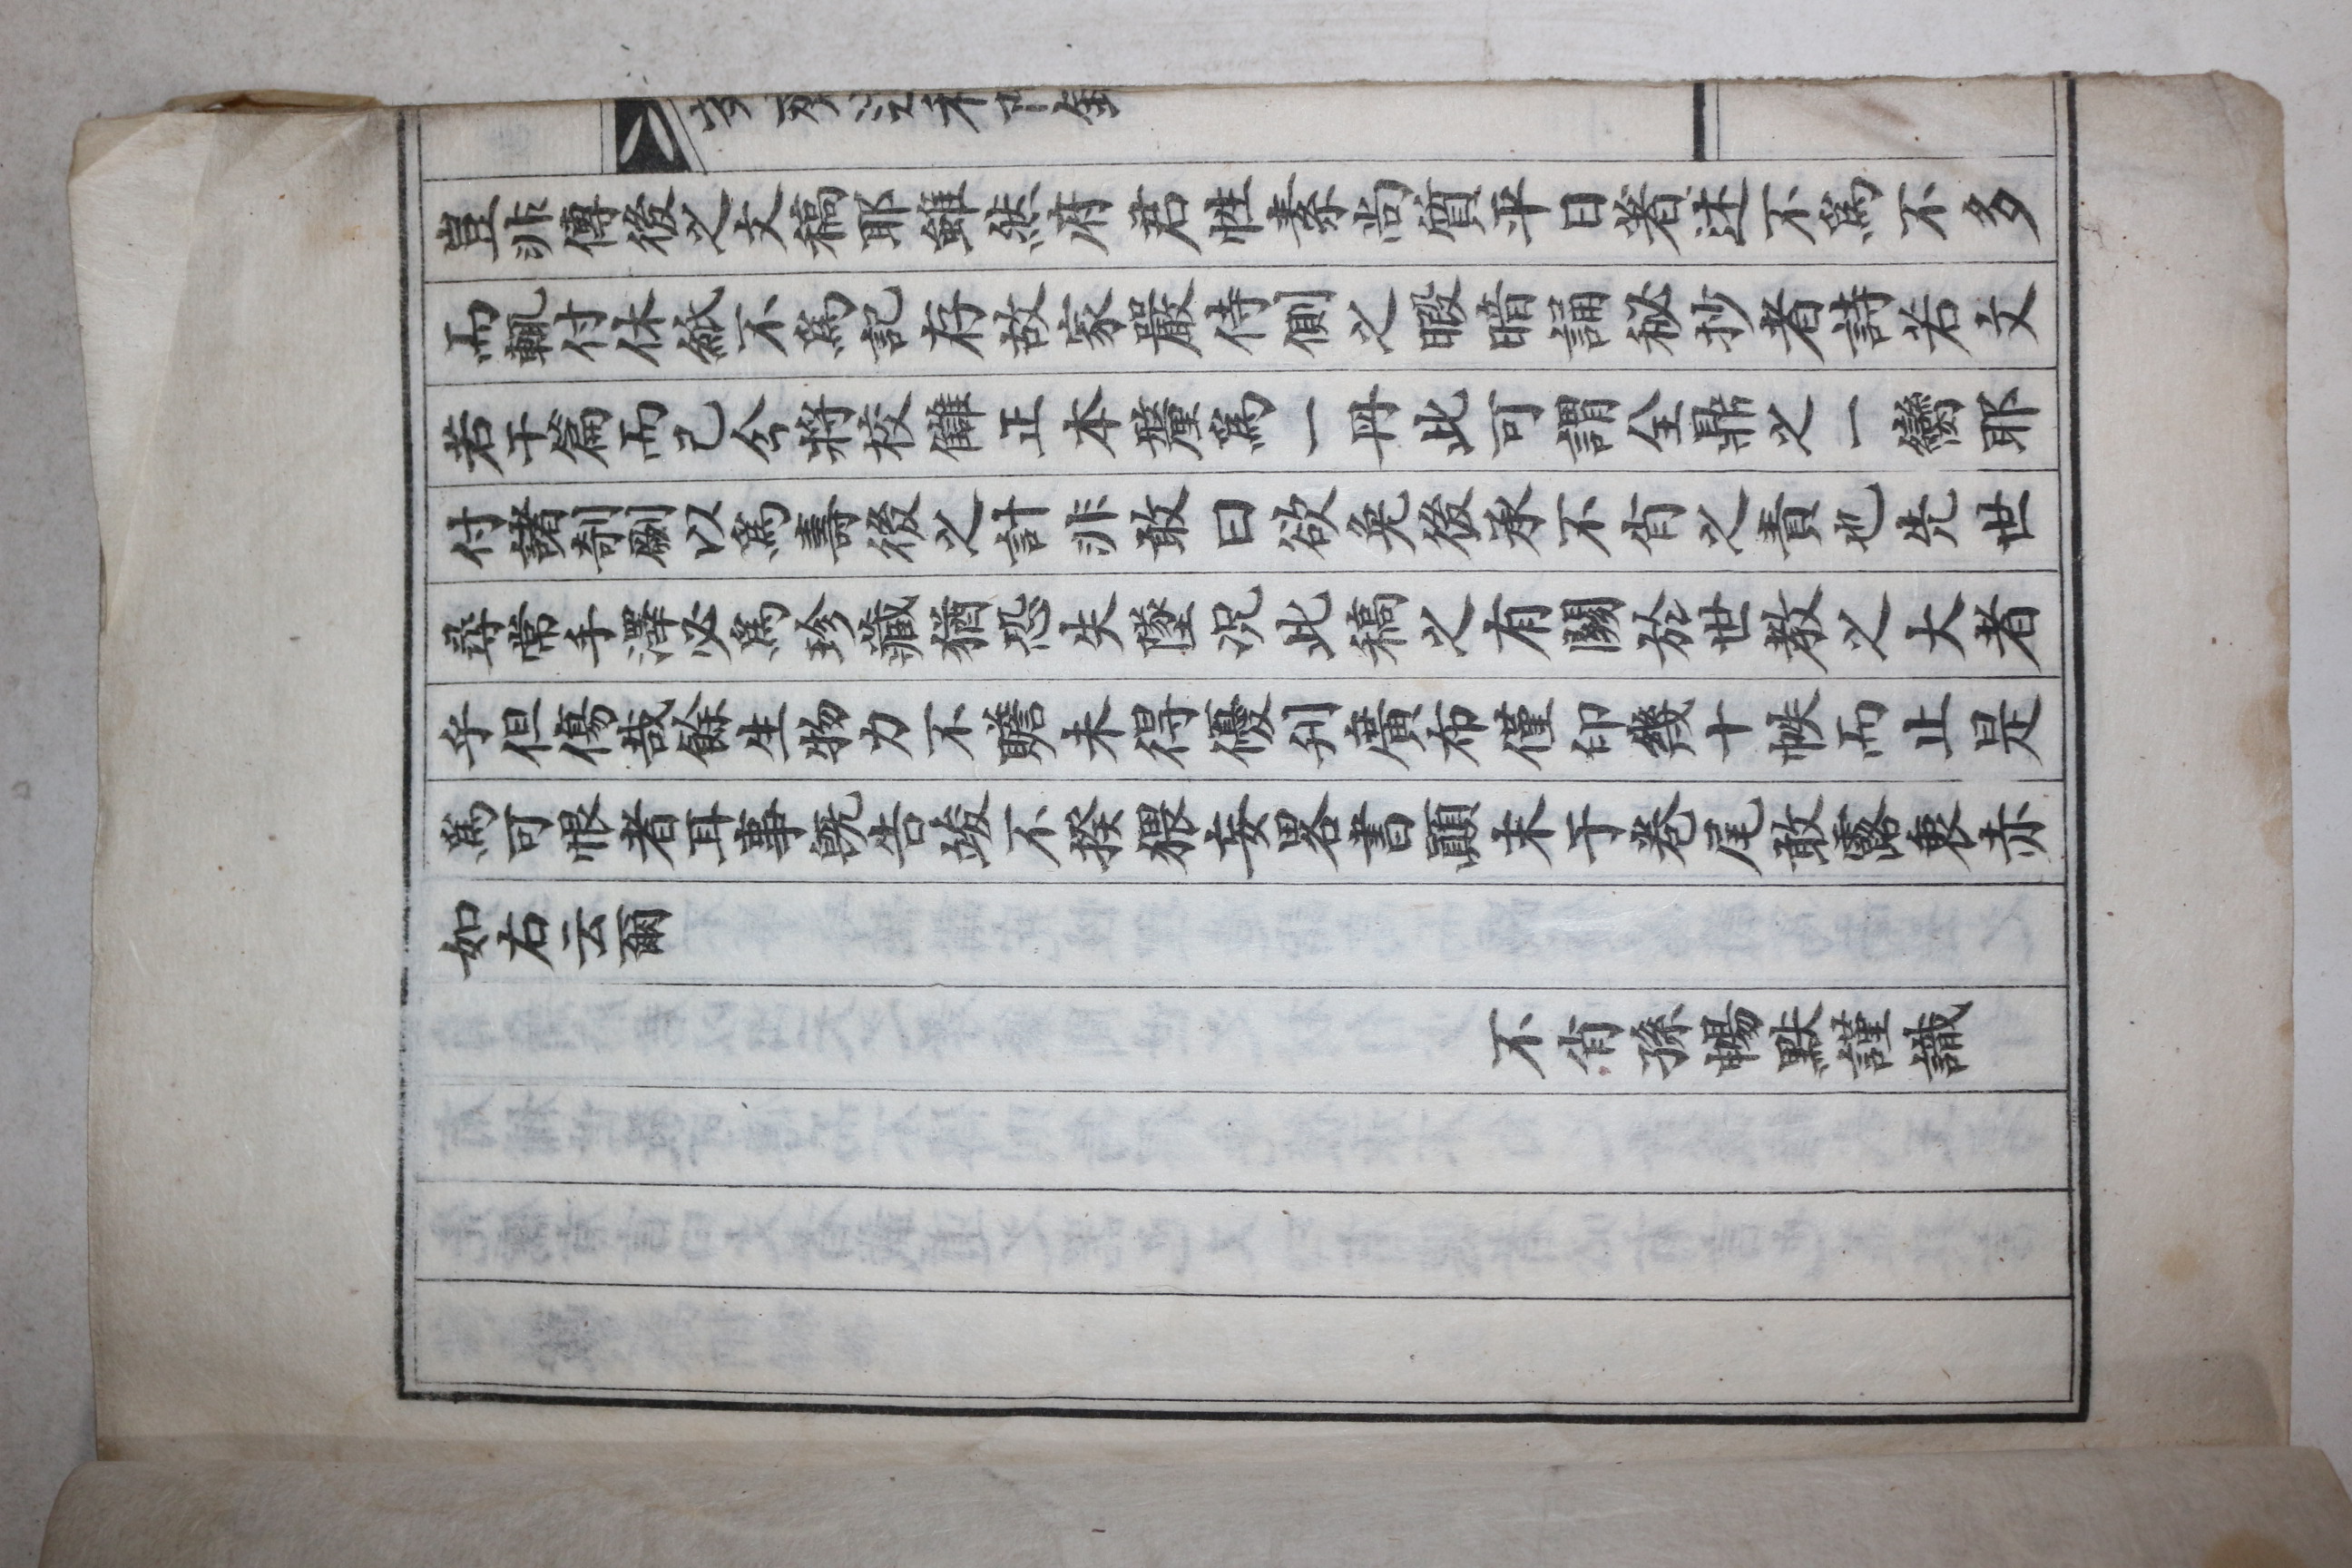 豈非傳後之文稿耶雖然府君性素尚質平日著述不爲不多
而輒付休紙不爲記存故家嚴侍側之暇暗誦秘抄者詩若文
若干篇而已今將校讎正本釐爲一冊此可謂全鼎之一臠耶
付諸剞劂以爲壽後之計非敢曰欲免後承不肖之責也先世
尋常手澤必爲珍藏猶恐失墜況此稿之有關於世教之大者
乎但傷哉餘生物力不贍未得優刋廣布僅印幾十帙而止是
爲可恨者耳事旣告竣不揆猥妄畧書顚末于卷尾敢露衷赤
如右云爾
不肖孫暢點謹識